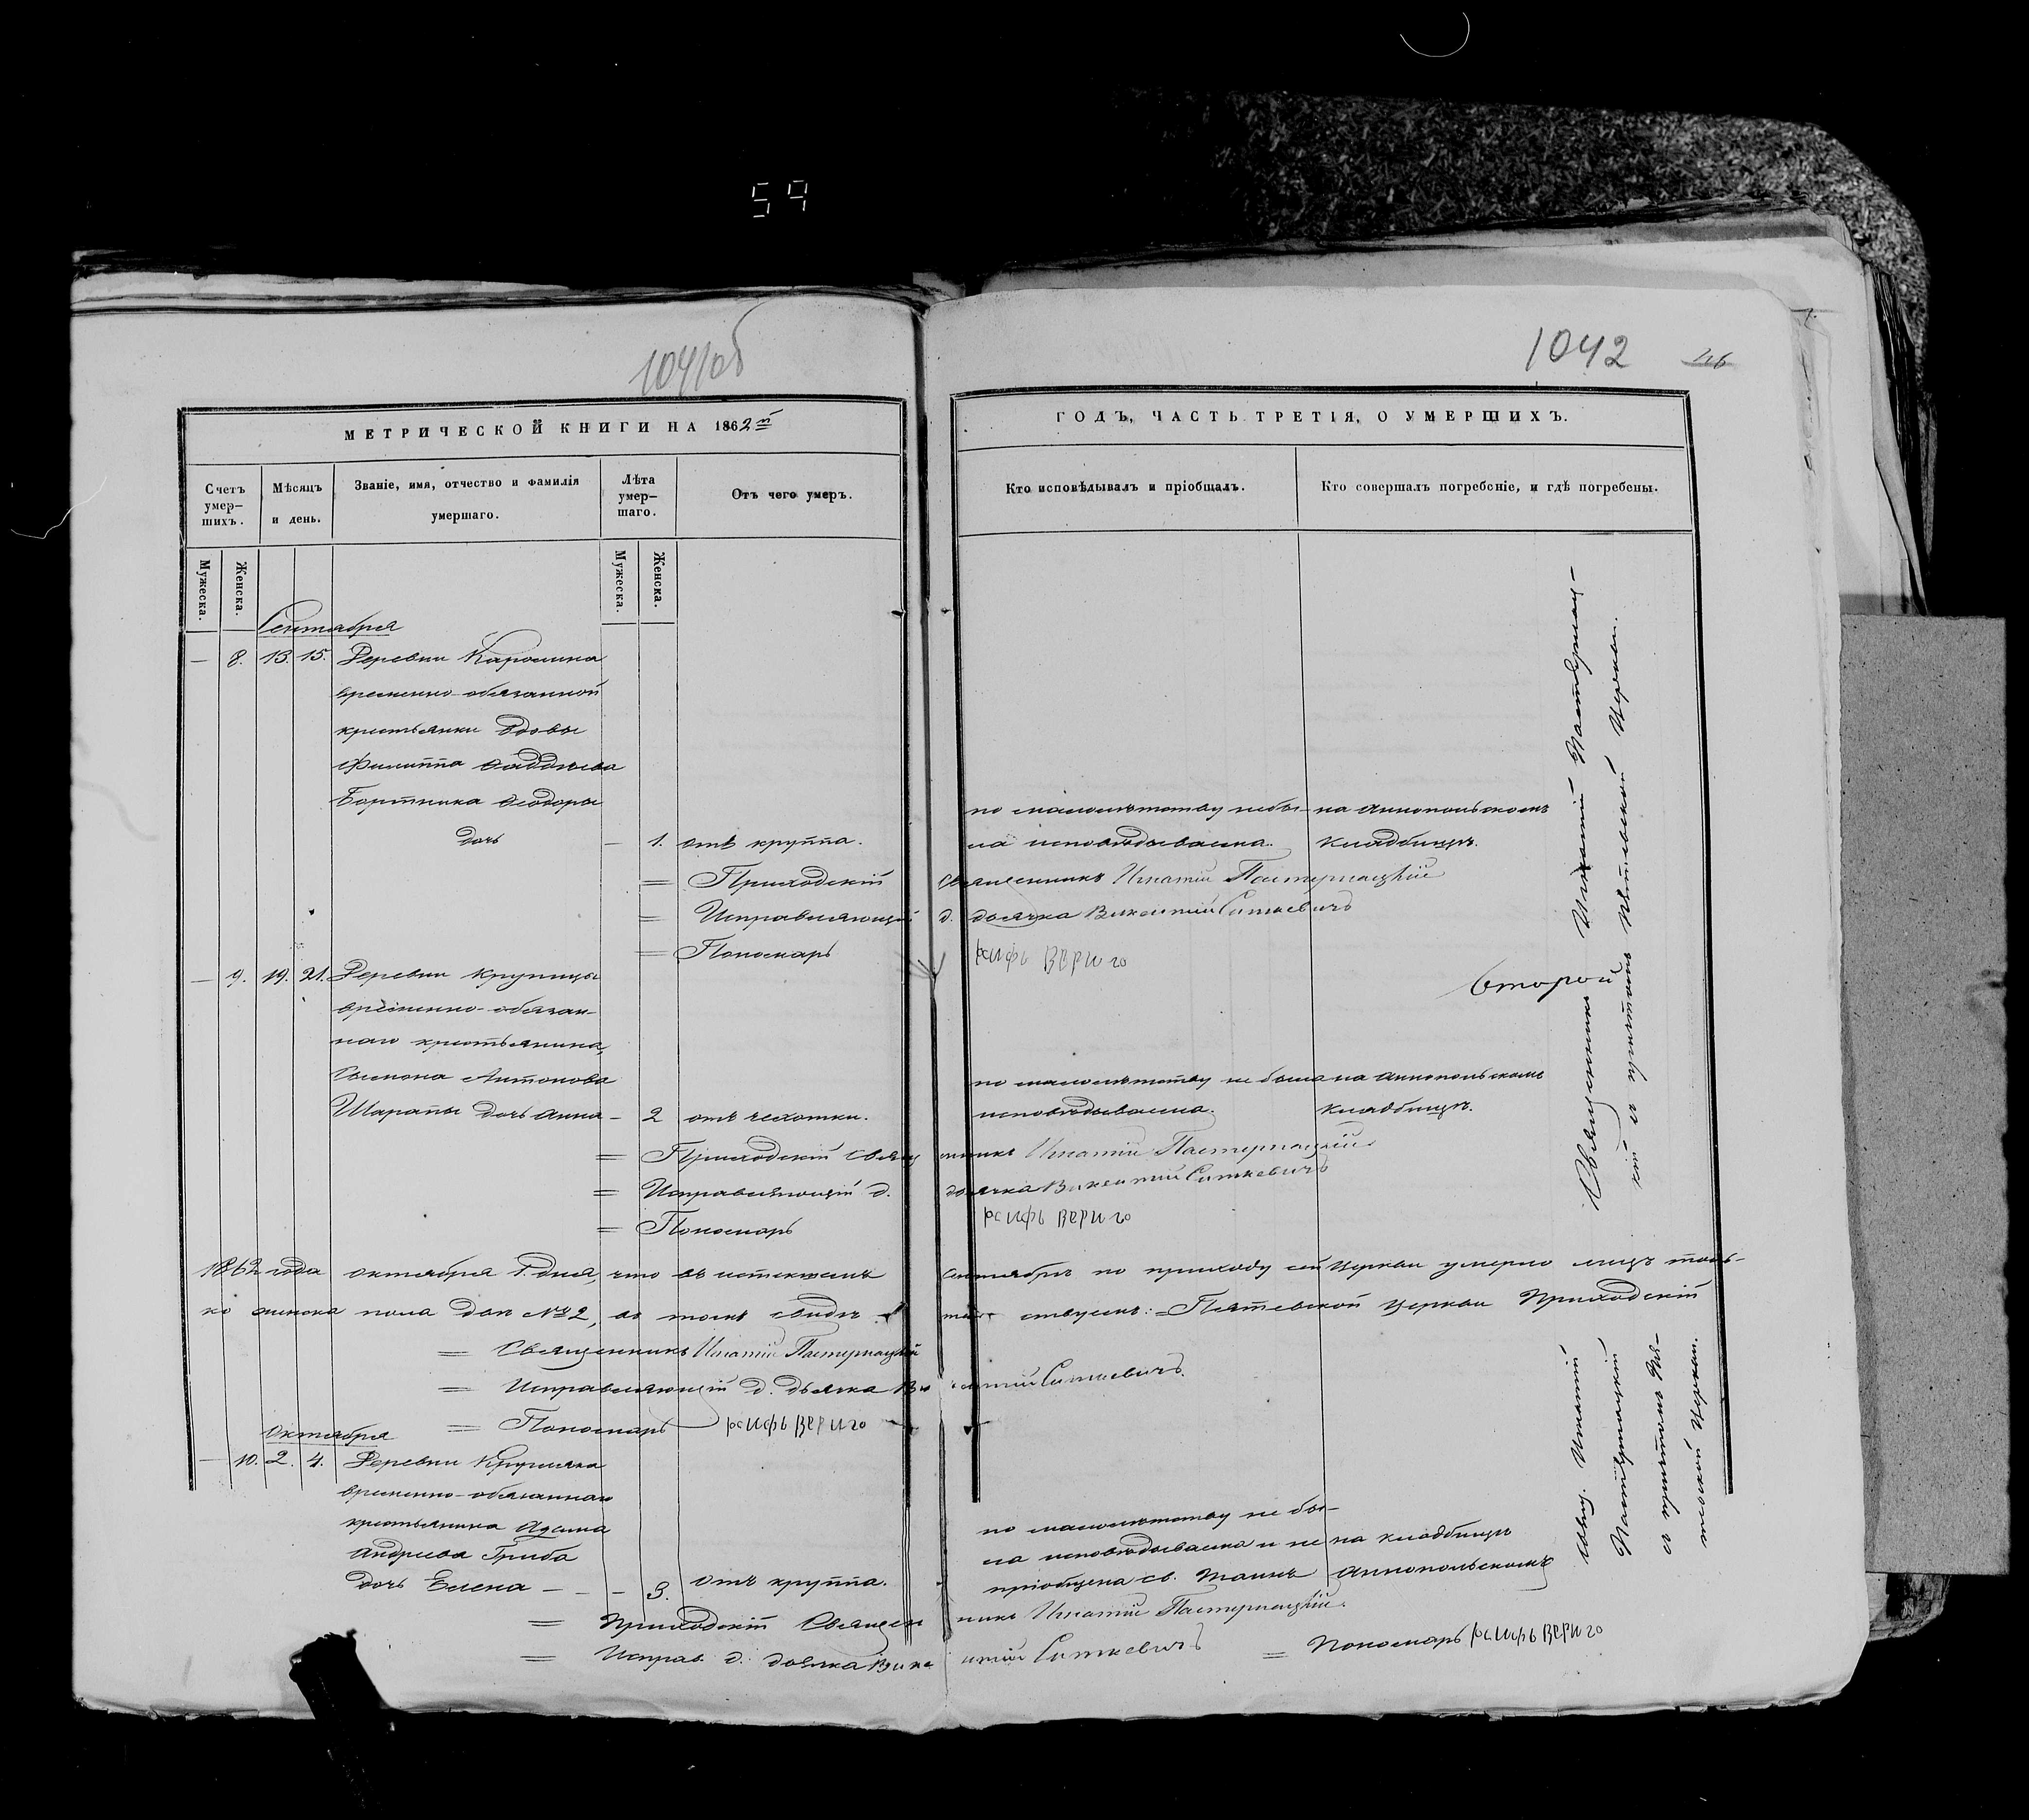 59
1041об
1042
46
МЕТРИЧЕСКОЙ КНИГИ НА 1862й
ГОДЪ, ЧАСТЬ ТРЕТІЯ, О УМЕРШИХЪ.
Счетъ умер-шихъ.
Мѣсяцъ и день.
Званіе, имя, отчество и фамилія умершаго.
Лѣта умер-шаго.
Отъ чего умеръ.
Кто исповѣдывалъ и пріобщалъ.
Кто совершалъ погребеніе, и гдѣ погребены.
Мужеска.
Женска.
Мужеска.
Женска.
Сентября
— 8. 13. 15. Деревни Каролина
временно-обязанной
крестьянки вдовы
Филиппа Ѳаддѣева
Бортника Ѳеодоры
дочь — 1. отъ круппа.
по малолѣтству небы-
ла исповѣдываема.
на Аннопольскомъ
кладбищѣ.
= Приходскій Священникъ Игнатій Пастернацкій
= Исправляющій д. дьячка Викентій Ситкевичъ
= Пономарь Іосифъ Вериго
— 9. 19. 21. Деревни Крупицы
временно-обязан-
наго крестьянина,
Сымона Антонова
Шарапы дочь Анна — 2 отъ чехотки.
по малолѣтству не была
исповѣдываема.
на Аннопольскомъ
кладбищѣ.
= Приходскій Священникъ Игнатій Пастернацкій
= Исправляющій д. дьячка Викентій Ситкевичъ
= Пономарь Іосифъ Вериго
Второй
Священникъ Игнатій Пастернац-
кій съ причтомъ Пятевской Церкви.
1862 года октября 1. дня, что въ истекшемъ Сентябрѣ по приходу сей Церкви умерло лицъ толь-
ко женска пола двѣ № 2, въ томъ свидѣтельствуемъ: = Пятевской Церкви Приходскій
= Священникъ Игнатій Пастернацкій
= Исправляющій д. дьячка Викентій Ситкевичъ.
= Пономарь Іосифъ Вериго
Октября
— 10. 2. 4. Деревни Крулика
временно-обязаннаго
крестьянина Адама
Андреева Гриба
дочь Елена — — — 3. отъ круппа.
по малолѣтству не бы-
ла исповѣдываема и не
пріобщена св. Таинъ
на кладбищѣ
Аннопольскомъ
= Приходскій Священникъ Игнатій Пастернацкій.
= Исправ. д. дьячка Викентій Ситкевичъ = Пономарь Іосифъ Вериго
Свящ. Игнатій
Пастернацкій
съ причтомъ Пя-
тевской Церкви.